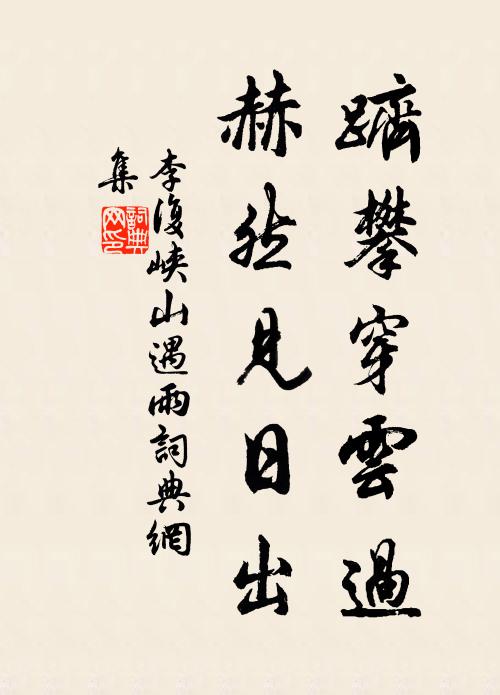 躋攀穿雲過
赫然見日出
李復峽山遇雨詞典網
集
詞典網印